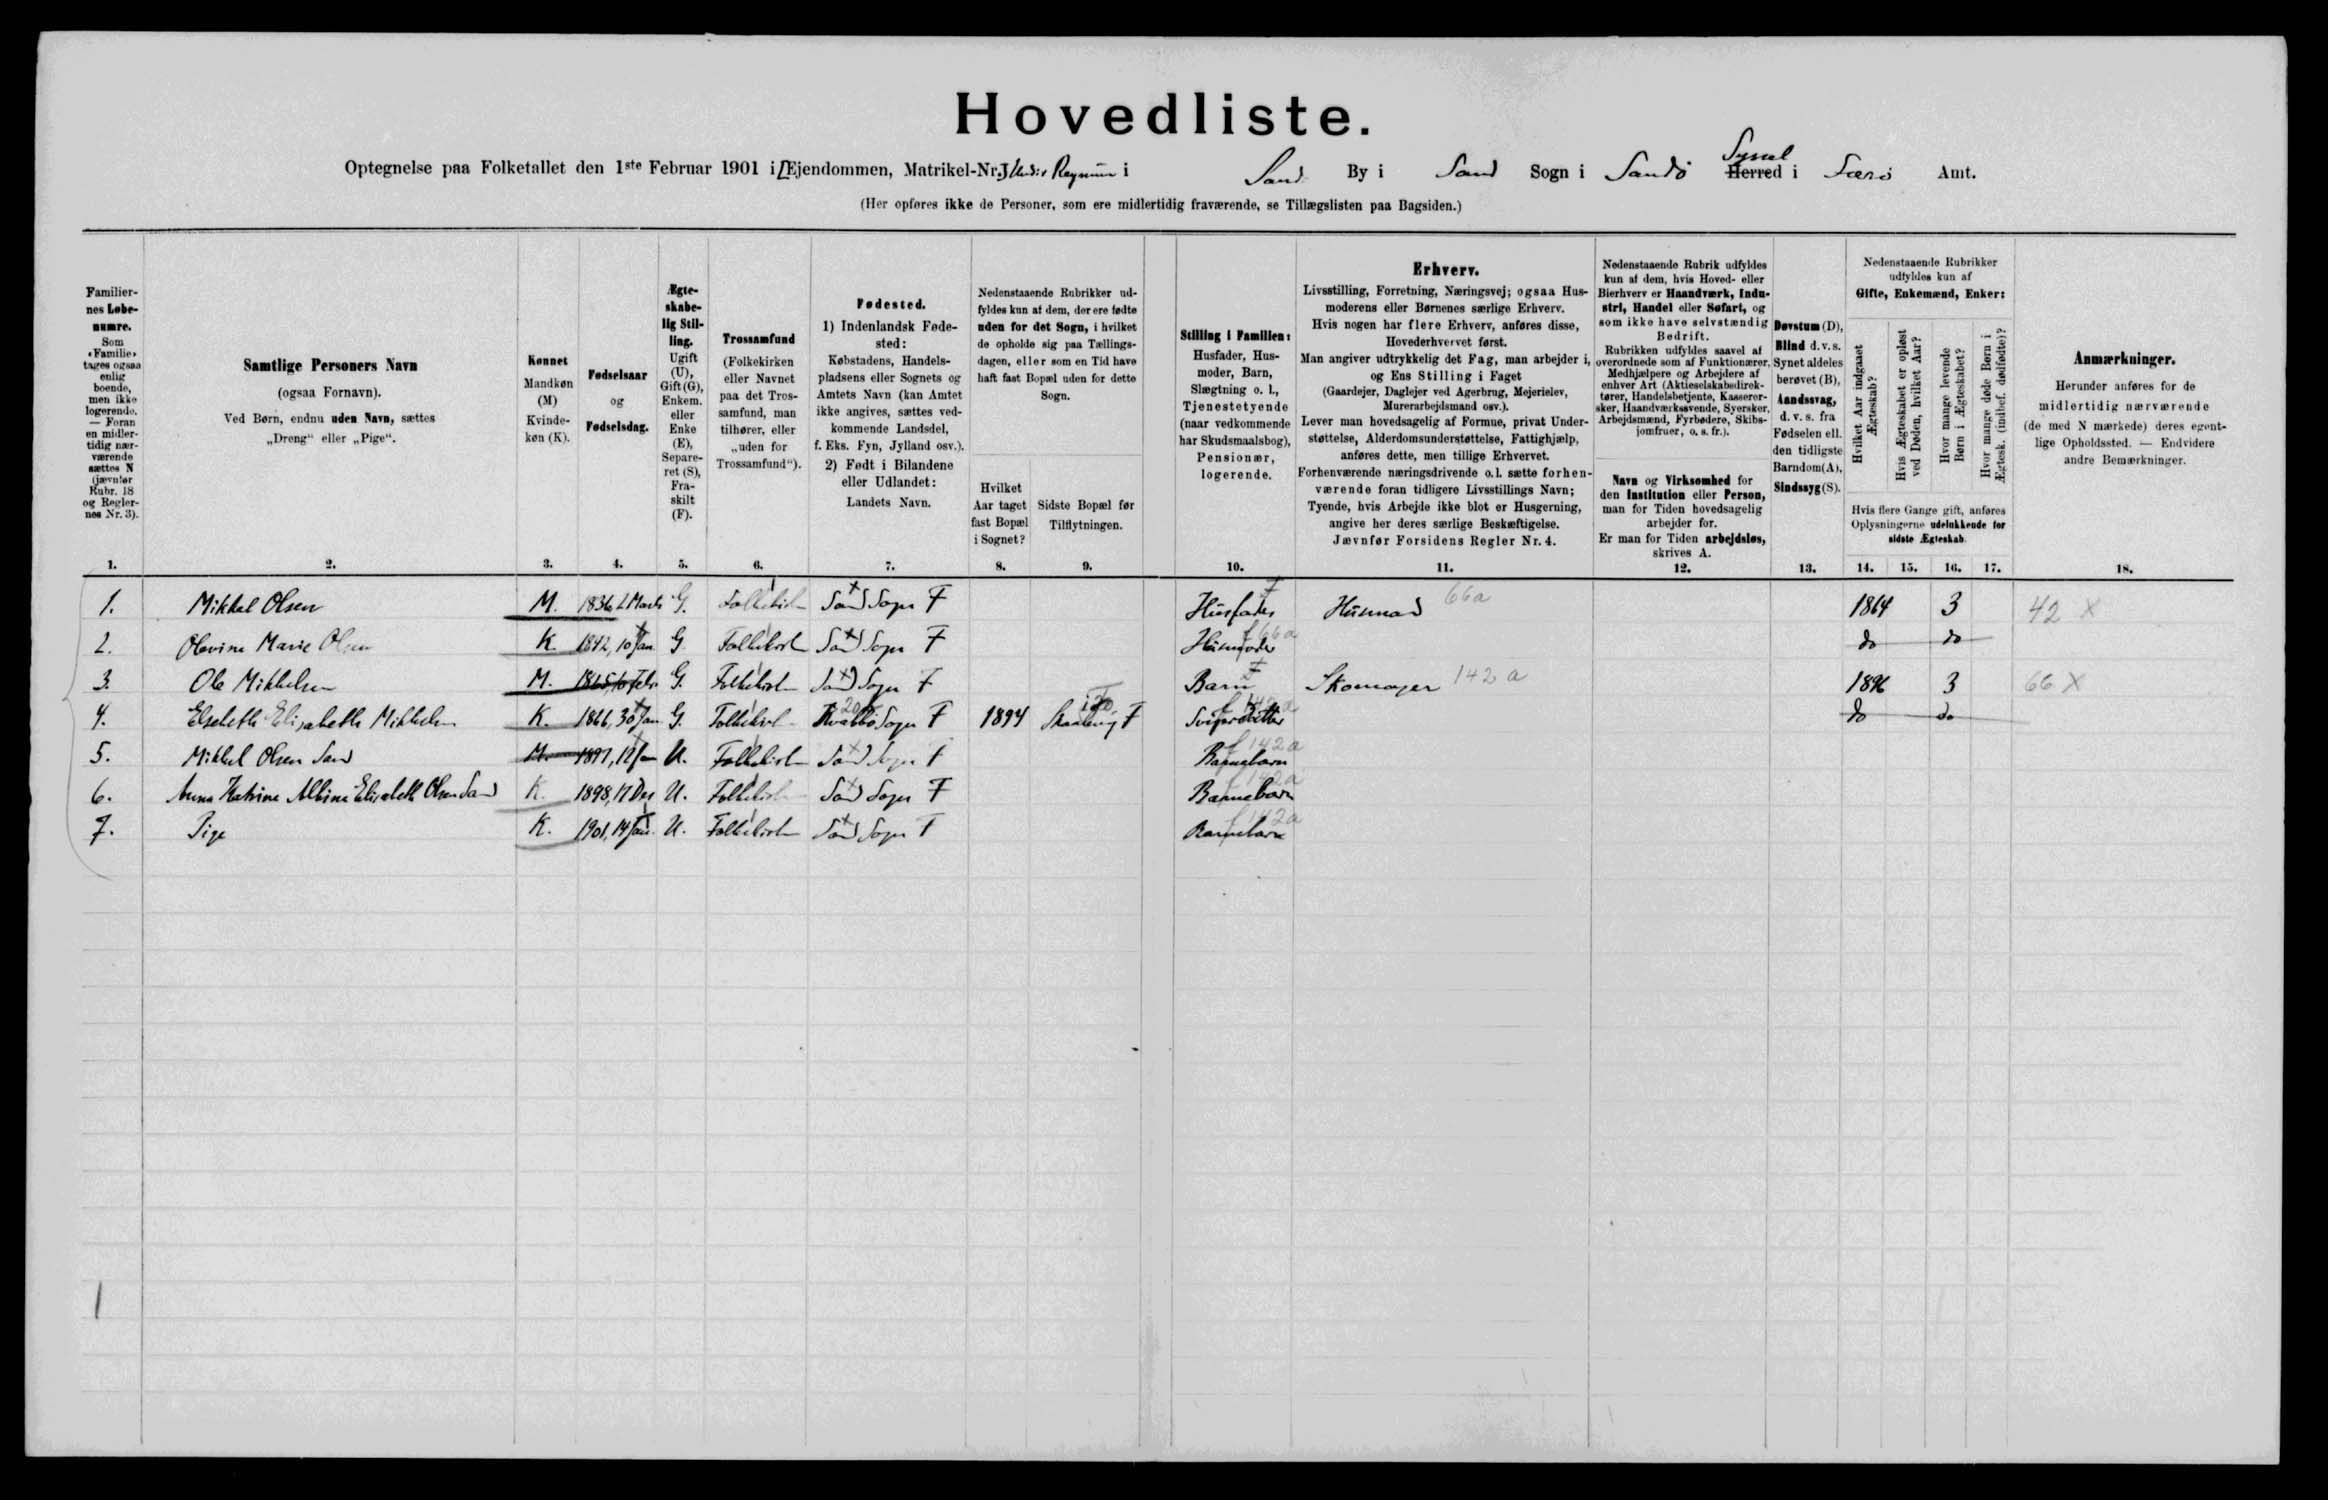 Hovedliste.
Optegnelse paa Folketallet den 1ste Februar 1901 i [Ejendommen, Matrikel-Nr.] i Sand By i Sand Sogn i Sandö Syssel Herred i Færö Amt.
(Her opføres ikke de Personer, som ere midlertidig fraværende, se Tillægslisten paa Bagsiden.)
Familier-
nes Løbe-
numre.
Som
„Familie“
tages ogsaa
enlig
boende,
men ikke
logerende.
— Foran
en midler-
tidig nær-
værende
sættes N
(jævnfør
Rubr. 18
og Regler-
nes Nr. 3).
1.
Samtlige Personers Navn
(ogsaa Fornavn).
Ved Børn, endnu uden Navn, sættes
„Dreng“ eller „Pige“.
2.
Kønnet
Mandkøn
(M)
Kvinde-
køn (K).
3.
Fødselsaar
og
Fødselsdag.
4.
Ægte-
skabe-
lig Stil-
ling.
Ugift
(U),
Gift (G),
Enkem.
eller
Enke
(E),
Separe-
ret (S),
Fra-
skilt
(F).
5.
Trossamfund
(Folkekirken
eller Navnet
paa det Tros-
samfund, man
tilhører, eller
„uden for
Trossamfund“).
6.
Fødested.
1) Indenlandsk Føde-
sted:
Købstadens, Handels-
pladsens eller Sognets og
Amtets Navn (kan Amtet
ikke angives, sættes ved-
kommende Landsdel,
f. Eks. Fyn, Jylland osv.).
2) Født i Bilandene
eller Udlandet:
Landets Navn.
7.
Nedenstaaende Rubrikker ud-
fyldes kun af dem, der ere fødte
uden for det Sogn, i hvilket
de opholde sig paa Tællings-
dagen, eller som en Tid have
haft fast Bopæl uden for dette
Sogn.
Hvilket
Aar taget
fast Bopæl
i Sognet?
8.
Sidste Bopæl før
Tilflytningen.
9.
Stilling i Familien:
Husfader, Hus-
moder, Barn,
Slægtning o. l.,
Tjenestetyende
(naar vedkommende
har Skudsmaalsbog),
Pensionær,
logerende.
10.
Erhverv.
Livsstilling, Forretning, Næringsvej; ogsaa Hus-
moderens eller Børnenes særlige Erhverv.
Hvis nogen har flere Erhverv, anføres disse,
Hovederhvervet først.
Man angiver udtrykkelig det Fag, man arbejder i,
og Ens Stilling i Faget
(Gaardejer, Daglejer ved Agerbrug, Mejerielev,
Murerarbejdsmand osv.).
Lever man hovedsagelig af Formue, privat Under-
støttelse, Alderdomsunderstøttelse, Fattighjælp,
anføres dette, men tillige Erhvervet.
Forhenværende næringsdrivende o.l. sætte forhen-
værende foran tidligere Livsstillings Navn;
Tyende, hvis Arbejde ikke blot er Husgerning,
angive her deres særlige Beskæftigelse.
Jævnfør Forsidens Regler Nr. 4.
11.
Nedenstaaende Rubrik udfyldes
kun af dem, hvis Hoved- eller
Bierhverv er Haandværk, Indu-
stri, Handel eller Søfart, og
som ikke have selvstændig
Bedrift.
Rubrikken udfyldes saavel af
overordnede som af Funktionærer,
Medhjælpere og Arbejdere af
enhver Art (Aktieselskabsdirek-
tører, Handelsbetjente, Kasserer-
sker, Haandværkssvende, Syersker,
Arbejdsmænd, Fyrbødere, Skibs-
jomfruer, o. s. fr.).
Navn og Virksomhed for
den Institution eller Person,
man for Tiden hovedsagelig
arbejder for.
Er man for Tiden arbejdsløs,
skrives A.
12.
Døvstum (D),
Blind d.v.s.
Synet aldeles
berøvet (B),
Aandssvag,
d. v. s. fra
Fødselen ell.
den tidligste
Barndom (A),
Sindssyg (S).
13.
Nedenstaaende Rubrikker
udfyldes kun af
Gifte, Enkemænd, Enker:
Hvilket Aar indgaaet
Ægteskab?
Hvis Ægteskabet er opløst
ved Døden, hvilket Aar?
Hvor mange levende
Børn i Ægteskabet?
Hvor mange døde Børn i
Ægtesk. (indbef. dødfødte)?
Hvis flere Gange gift, anføres
Oplysningerne udelukkende for
sidste Ægteskab.
14. 15. 16. 17.
Anmærkninger.
Herunder anføres for de
midlertidig nærværende
(de med N mærkede) deres egent-
lige Opholdssted. — Endvidere
andre Bemærkninger.
18.
1. Mikkal Olsen M. 1836, 2 Marts G. Folkekirk Sand Sogn F Husfader Husmand 66a 1864 3 42 X
2. Olevine Marie Olsen K. 1842, 10 Jan. G Folkekirk Sand Sogn F Husmoder 66a do do
3. Ole Mikkelsen M. 1865, 10 Febr. G. Folkekirk Sand Sogn F Barn Skomager 142a 1896 3 66 X
4. Elsebeth Elisabeth Mikkelsen K. 1866, 30 Jan G. Folkekirk Kvalbö Sogn F 1894 F Svigerdatter do do
5. Mikkel Olsen Sand M. 1897, 12 Jan U. Folkekirk Sand Sogn F Barnebarn 142a
6. Anna Katrine Albine Elisabeth Olsen Sand K. 1898, 17 Des U. Folkekirk Sand Sogn F Barnebarn 142a
7. Pige K. 1901, 14 Jan. U. Folkekirk Sand Sogn F Barnebarn 142a